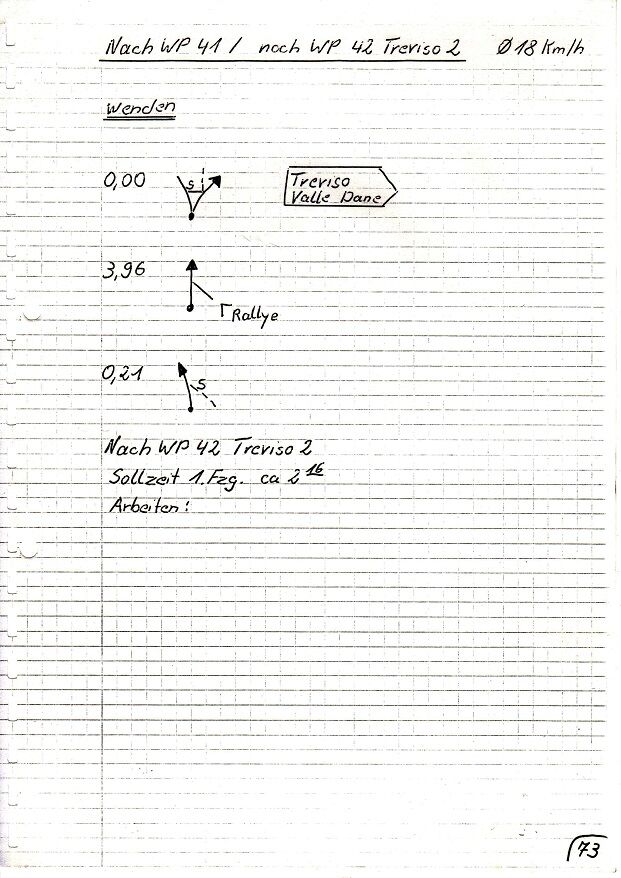 Nach WP 41 / nach WP 42 Treviso 2 Ø 18 Km/h
Wenden
0,00 S Treviso
Valle Dane
3,96
Rallye
0,21 S
Nach WP 42 Treviso 2
Sollzeit 1. Fzg. ca 2 16
Arbeiten:
73